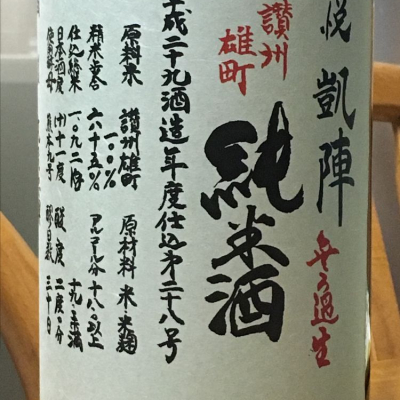 悦 凱陣
無ろ過生
讃州
雄町
純米酒
平成二十九酒造年度仕込第二十八号
原料米 讃州雄町 一〇〇%
原材料 米・米麹
精米歩合 六十五%
アルコール分 十八%以上
十九%未満
日本酒度 (+)十一度
酸度 二度
熊本九号
三十日